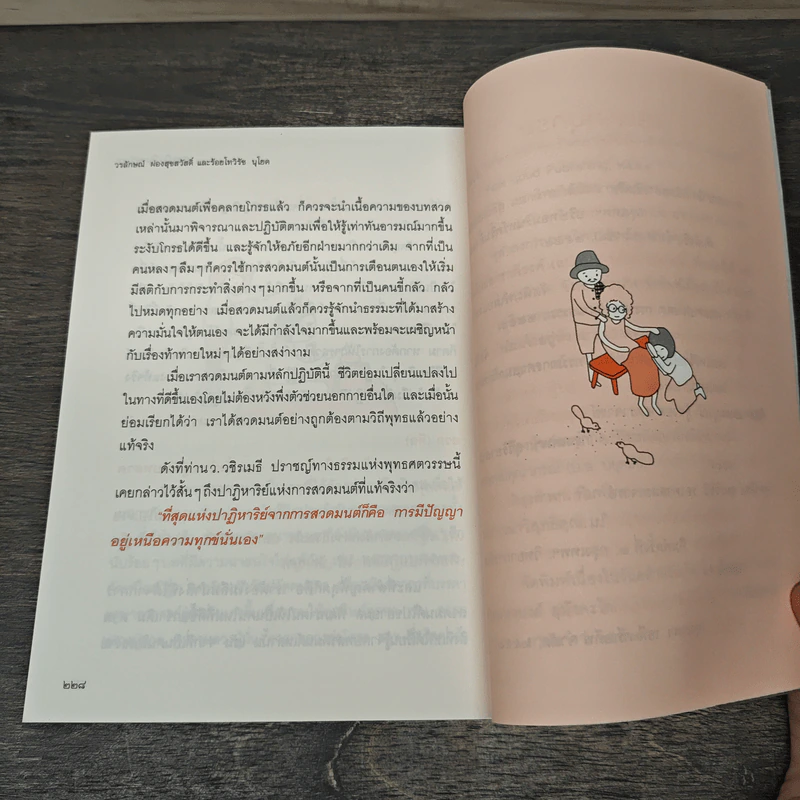 วรลักษณ์ ผ่องสุขสวัสดิ์ และร้อยโทวิรัช นุโยค
เมื่อสวดมนต์เพื่อคลายโกรธแล้ว ก็ควรจะนำเนื้อความของบทสวด
เหล่านั้นมาพิจารณาและปฏิบัติตามเพื่อให้รู้เท่าทันอารมณ์มากขึ้น
ระงับโกรธได้ดีขึ้น และรู้จักให้อภัยอีกฝ่ายมากกว่าเดิม จากที่เป็น
คนหลงๆลืมๆก็ควรใช้การสวดมนต์นั้นเป็นการเตือนตนเองให้เริ่ม
มีสติกับการกระทำสิ่งต่างๆมากขึ้น หรือจากที่เป็นคนขี้กลัว กลัว
ไปหมดทุกอย่าง เมื่อสวดมนต์แล้วก็ควรรู้จักนำธรรมะที่ได้มาสร้าง
ความมั่นใจให้ตนเอง จะได้มีกำลังใจมากขึ้นและพร้อมจะเผชิญหน้า
กับเรื่องท้าทายใหม่ๆได้อย่างสง่างาม
เมื่อเราสวดมนต์ตามหลักปฏิบัตินี้ ชีวิตย่อมเปลี่ยนแปลงไป
ในทางที่ดีขึ้นเองโดยไม่ต้องหวังพึ่งตัวช่วยนอกกายอื่นใด และเมื่อนั้น
ย่อมเรียกได้ว่า เราได้สวดมนต์อย่างถูกต้องตามวิถีพุทธแล้วอย่าง
แท้จริง
ดังที่ท่าน ว.วชิรเมธี ปราชญ์ทางธรรมแห่งพุทธศตวรรษนี้
เคยกล่าวไว้สั้นๆถึงปาฏิหาริย์แห่งการสวดมนต์ที่แท้จริงว่า
"ที่สุดแห่งปาฏิหาริย์จากการสวดมนต์ก็คือ การมีปัญญา
อยู่เหนือความทุกข์นั่นเอง"
๒๒๘